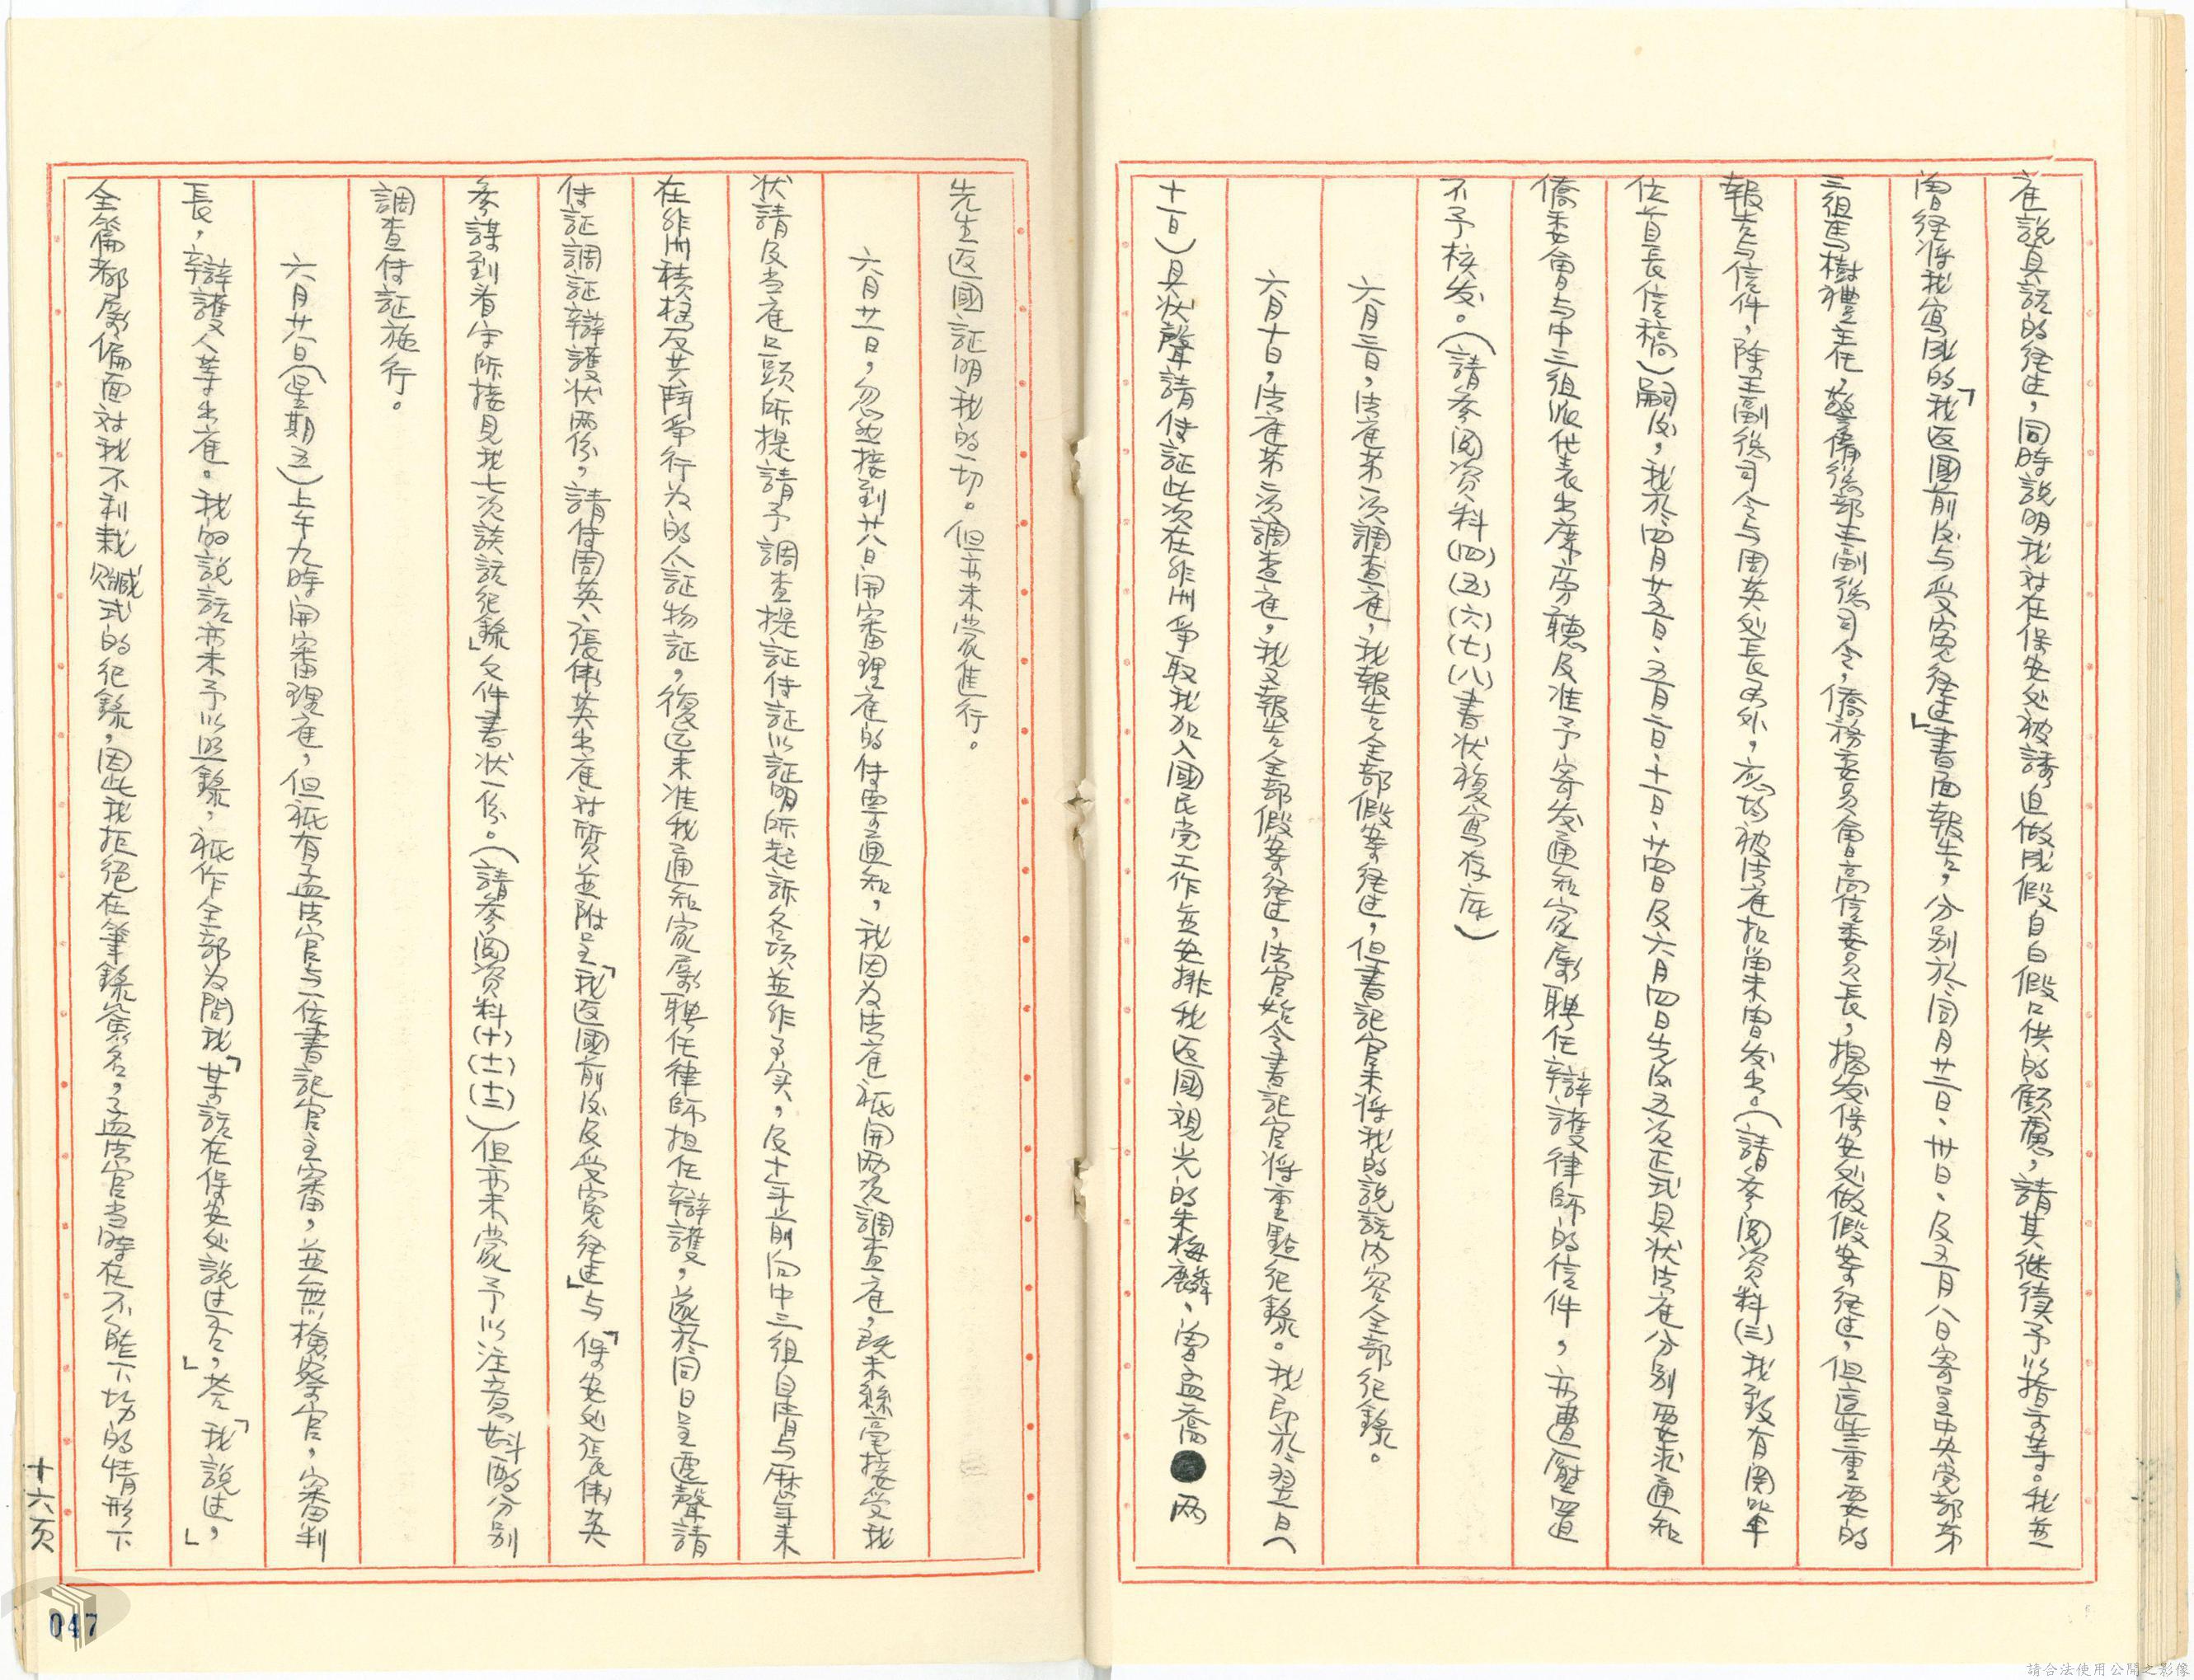 庭說真話的经过，同時說明我对在保安处被誘迫做成假自白假口供的顧慮，請其继續予以指示等。我並
曾经将我寫成的「我返國前后与受寃经过」書面報告，分別於同月廿二日、卅日、及五月八日寄呈中央党部第
三组馬樹禮主任，警備總部王副總司令，僑務委員會高信委員長，揭发保安处做假案经过，但這些重要的
報告与信件，除王副總司令与周英处长另外，应均被法庭扣留未曾发出。（請参阅资料(三)我致有関單
位首長信稿）嗣后，我於四月廿五日、五月二日、十一日、廿四日及六月四日先后五次正式具状法庭分别要求通知
僑委會与中三组派代表出席旁聽及准予寄发通知家屬聘任辯護律師的信件，亦遭壓置
不予核发。（請参阅资料(四)(五)(六)(七)(八)書状複寫存底）
六月三日，法庭第一次調查庭，我報告全部假案经过，但書記官未将我的說話内容全部纪錄。
六月十日，法庭第二次調查庭，我又報告全部假案经过，法官始令書記官将重點纪錄。我即於翌日（
十一日）具状聲請传証此次在非洲爭取我加入國民党工作並安排我返國觀光的朱梅麟、曾孟喬 两
先生返國証明我的一切。但亦未蒙進行。
六月廿一日，忽然接到廿八日開審理庭的传票通知，我因为法庭祗開两次調查庭，既未絲毫接受我
状請及当庭口頭所提請予調查提証传証以証明所起訴各項並非事实，及十年前向中三组自清与歷年来
在非洲積極反共鬥爭行为的人証物証，復迄未准我通知家屬聘任律師担任辯護，遂於同日呈遞聲請
传証調証辯護状两份，請传周英、張偉英出庭对質並附呈「我返國前后及受寃经过」与「保安处張偉英
参謀到看守所接見我七次談話纪錄」文件書状一份。（請参阅资料(十)(十一)(十二)）但亦未蒙予以注意斟酌分别
調查传証施行。
六月廿八日（星期五）上午九時開審理庭，但祗有孟法官与一位書記官主審，並無檢察官，審判
長，辯護人等出庭。我的說話亦未予以照錄，祗作全部为問我「某話在保安处說过否，」答「我說过，」
全篇都屬偏面对我不利栽贓式的纪錄，因此我拒绝在筆錄簽名，孟法官当時在不能下场的情形下
十六页
047
請合法使用公開之影像